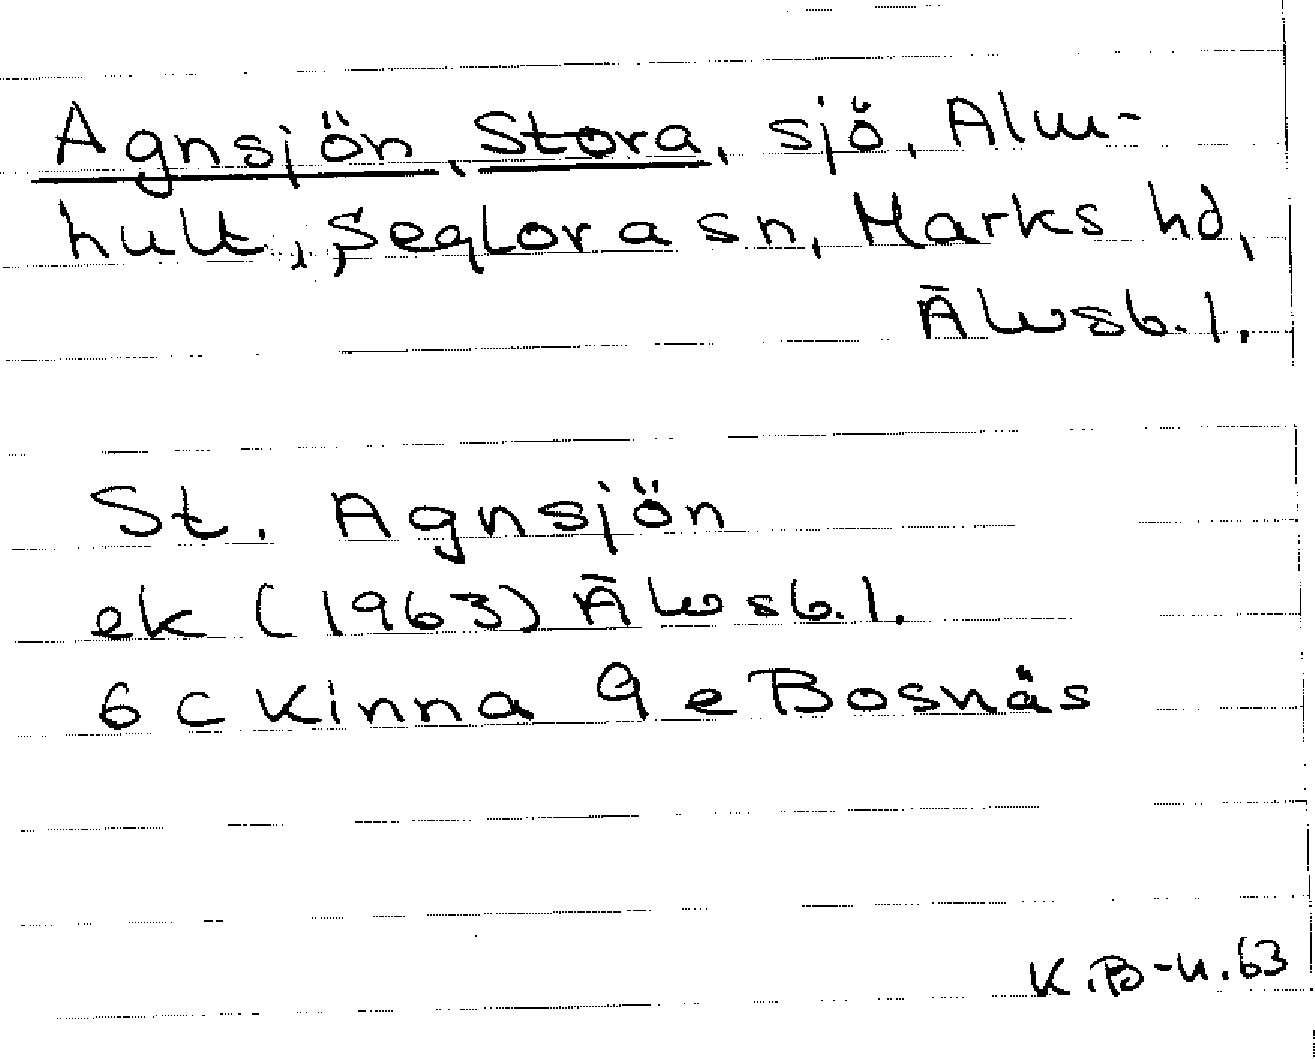 Agnsjön, Stora, sjö, Alm-
hult, Seglora sn, Marks hd,
Älvsb. l.
St. Agnsjön
ek (1963) Älvsb. l.
6 C Kinna 9 e Bosnäs
K.B-n.63